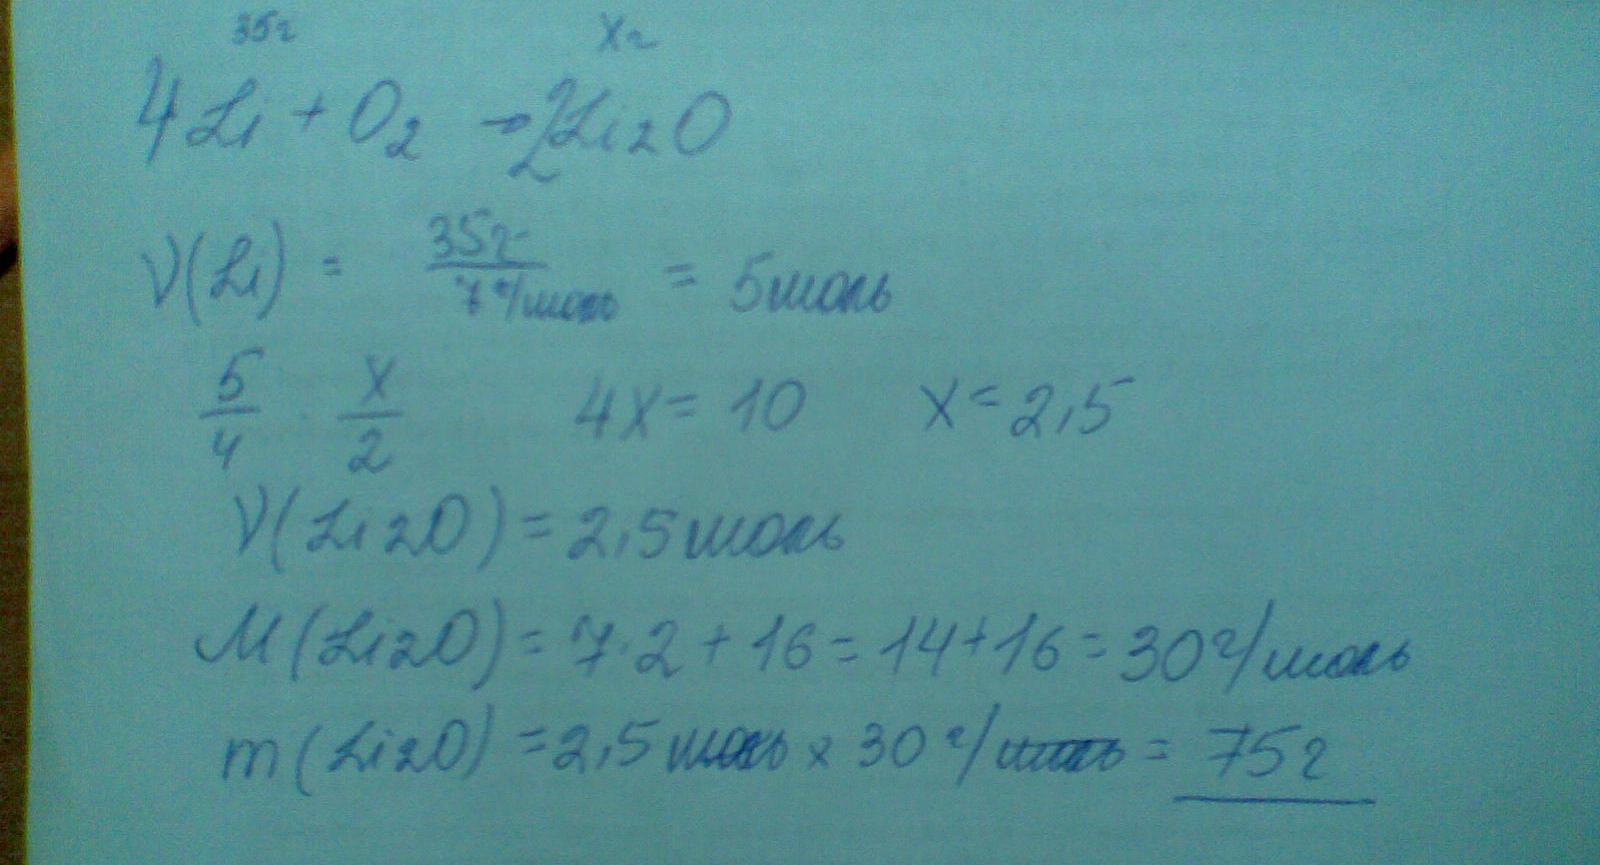 35г хг
4Li + O2 → 2Li2O
ν(Li) = 35г/7г/моль = 5моль
5/4 x/2 4x = 10 x = 2,5
ν(Li2O) = 2,5моль
M(Li2O) = 7·2 + 16 = 14+16 = 30г/моль
m(Li2O) = 2,5моль x 30г/моль = 75г